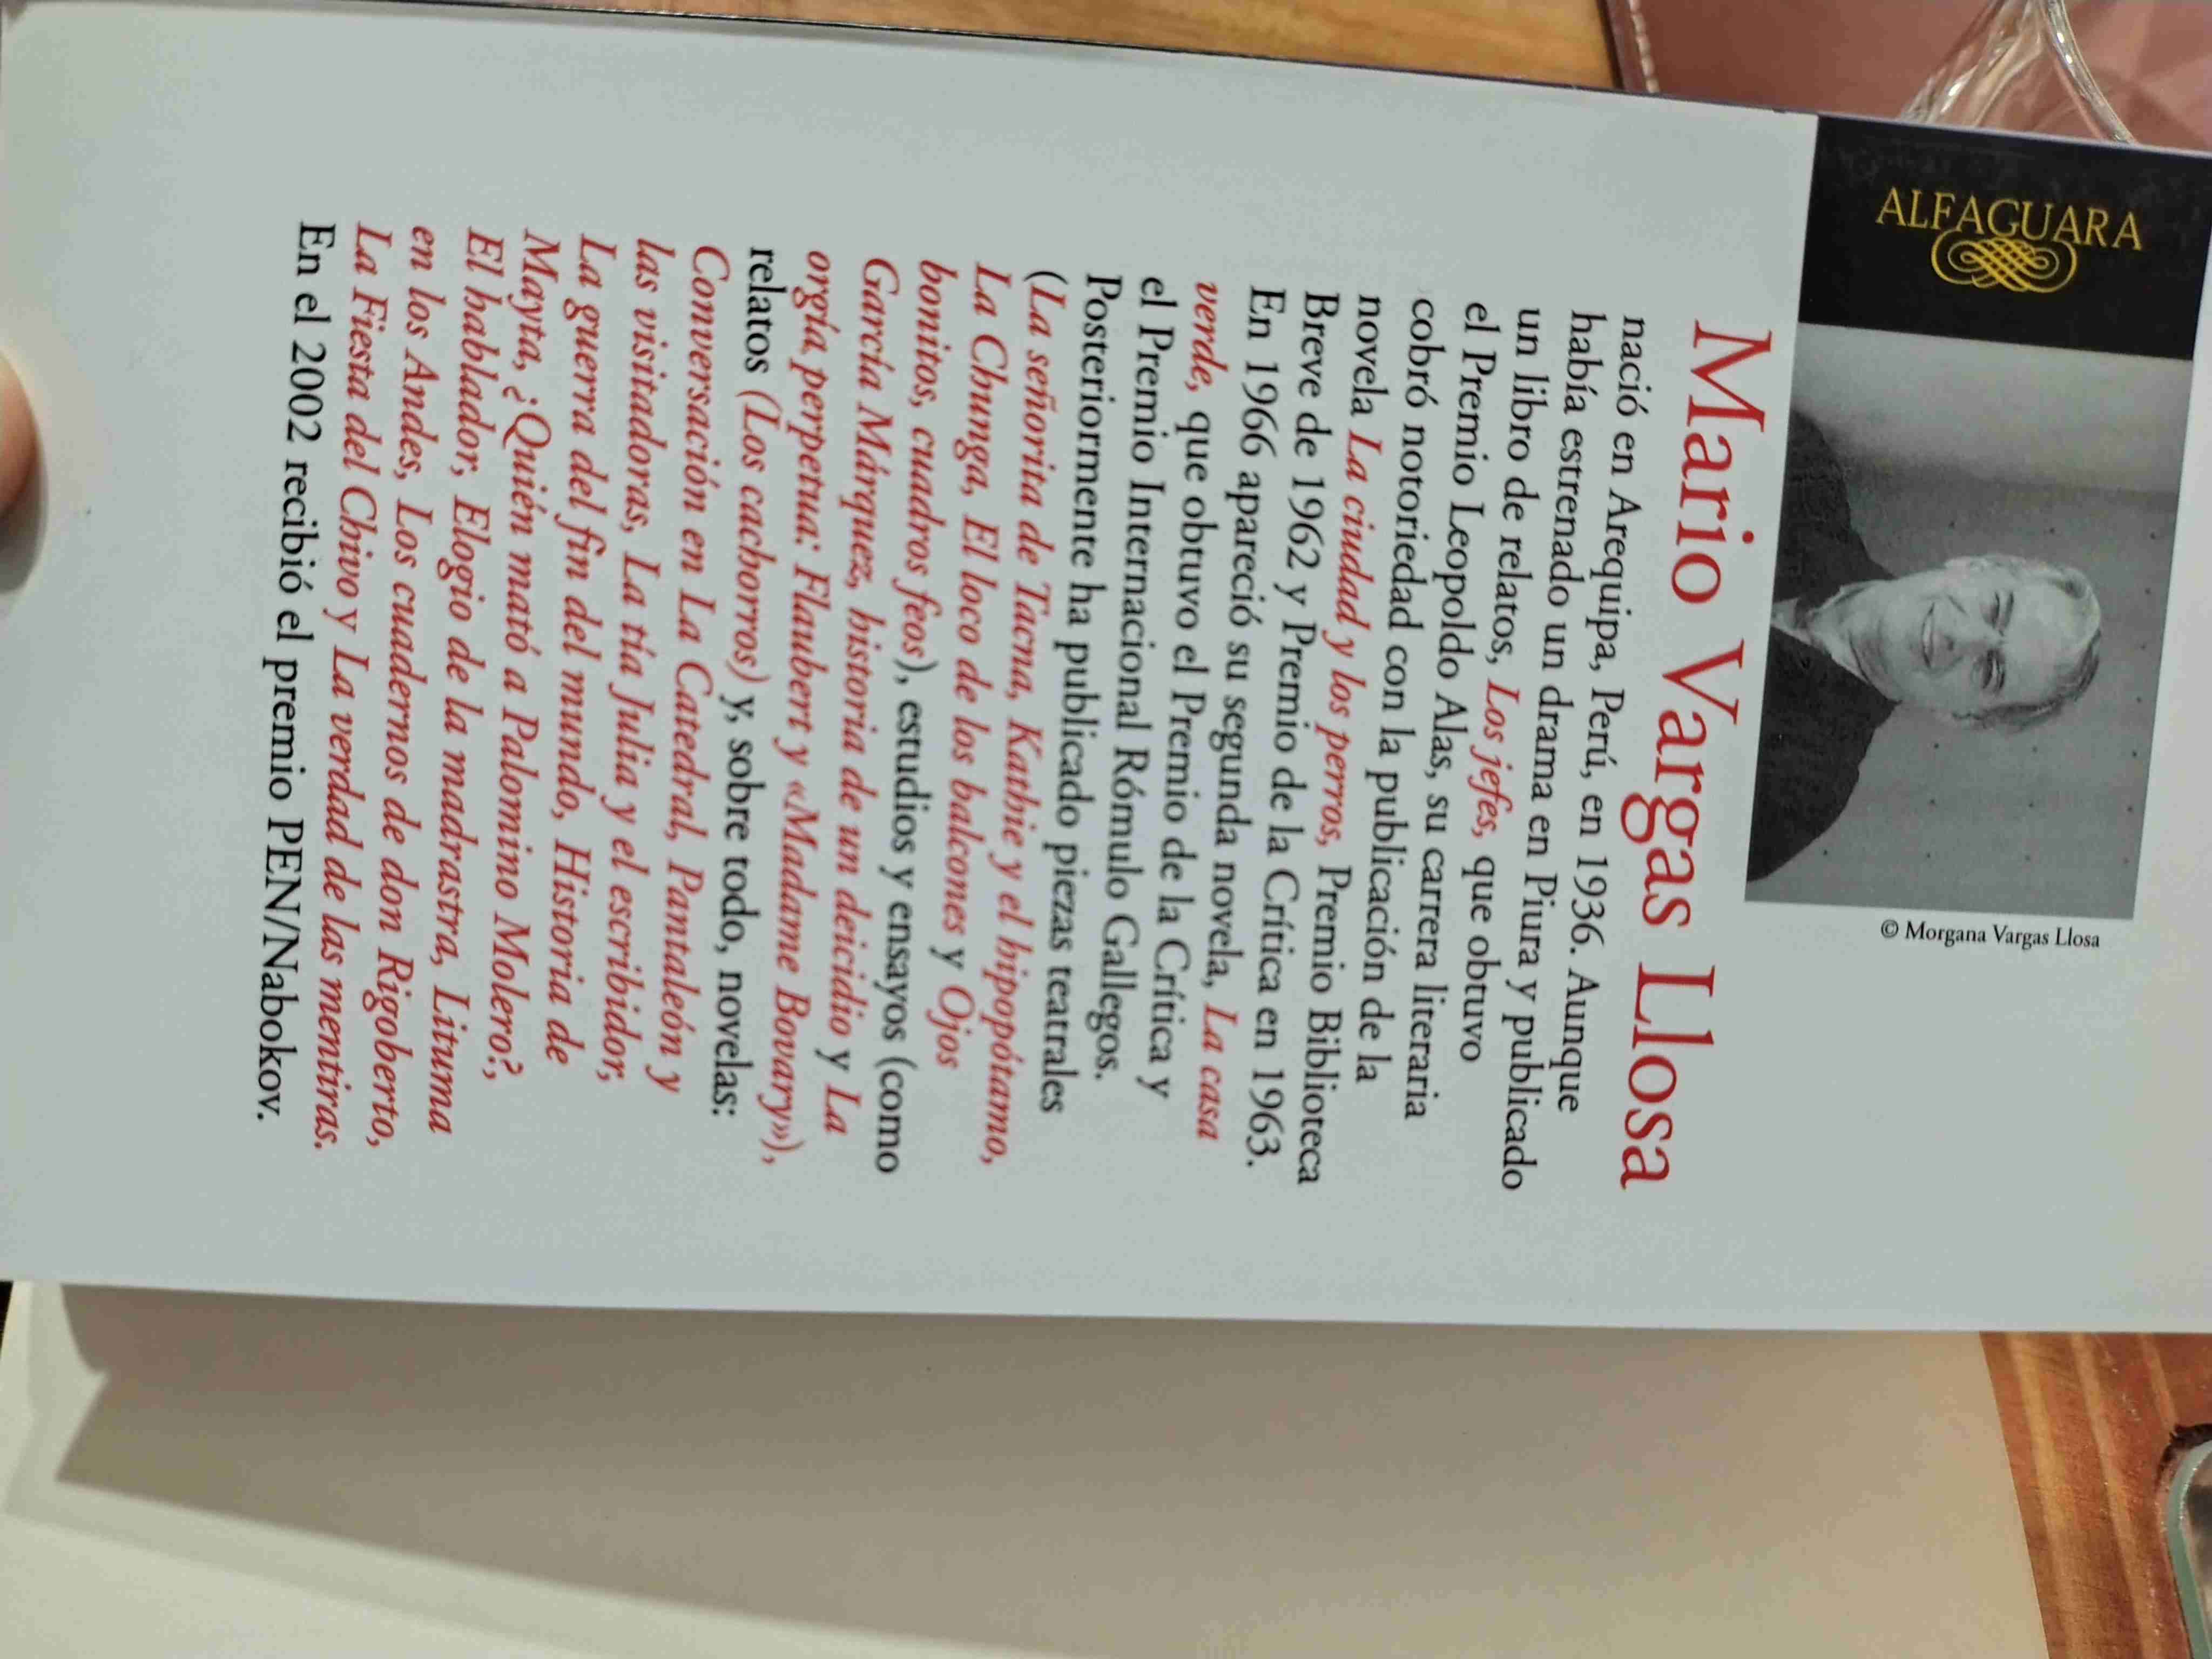 ALFAGUARA
© Morgana Vargas Llosa
Mario Vargas Llosa
nació en Arequipa, Perú, en 1936. Aunque
había estrenado un drama en Piura y publicado
un libro de relatos, Los jefes, que obtuvo
el Premio Leopoldo Alas, su carrera literaria
cobró notoriedad con la publicación de la
novela La ciudad y los perros, Premio Biblioteca
Breve de 1962 y Premio de la Crítica en 1963.
En 1966 apareció su segunda novela, La casa
verde, que obtuvo el Premio de la Crítica y
el Premio Internacional Rómulo Gallegos.
Posteriormente ha publicado piezas teatrales
(La señorita de Tacna, Kathie y el hipopótamo,
La Chunga, El loco de los balcones y Ojos
bonitos, cuadros feos), estudios y ensayos (como
García Márquez, historia de un deicidio y La
orgía perpetua: Flaubert y «Madame Bovary»),
relatos (Los cachorros) y, sobre todo, novelas:
Conversación en La Catedral, Pantaleón y
las visitadoras, La tía Julia y el escribidor,
La guerra del fin del mundo, Historia de
Mayta, ¿Quién mató a Palomino Molero?,
El hablador, Elogio de la madrastra, Lituma
en los Andes, Los cuadernos de don Rigoberto,
La Fiesta del Chivo y La verdad de las mentiras.
En el 2002 recibió el premio PEN/Nabokov.